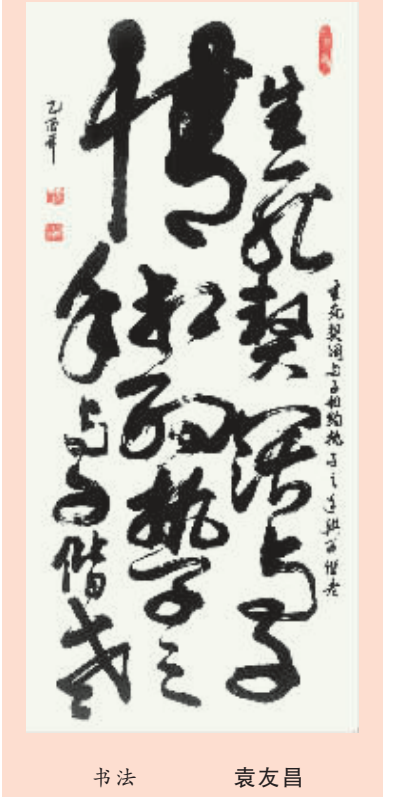 生死契阔与子相约执子之手與子偕老
生死契阔与子
情
相约执子之
手与子偕老
乙酉年
书法 袁友昌